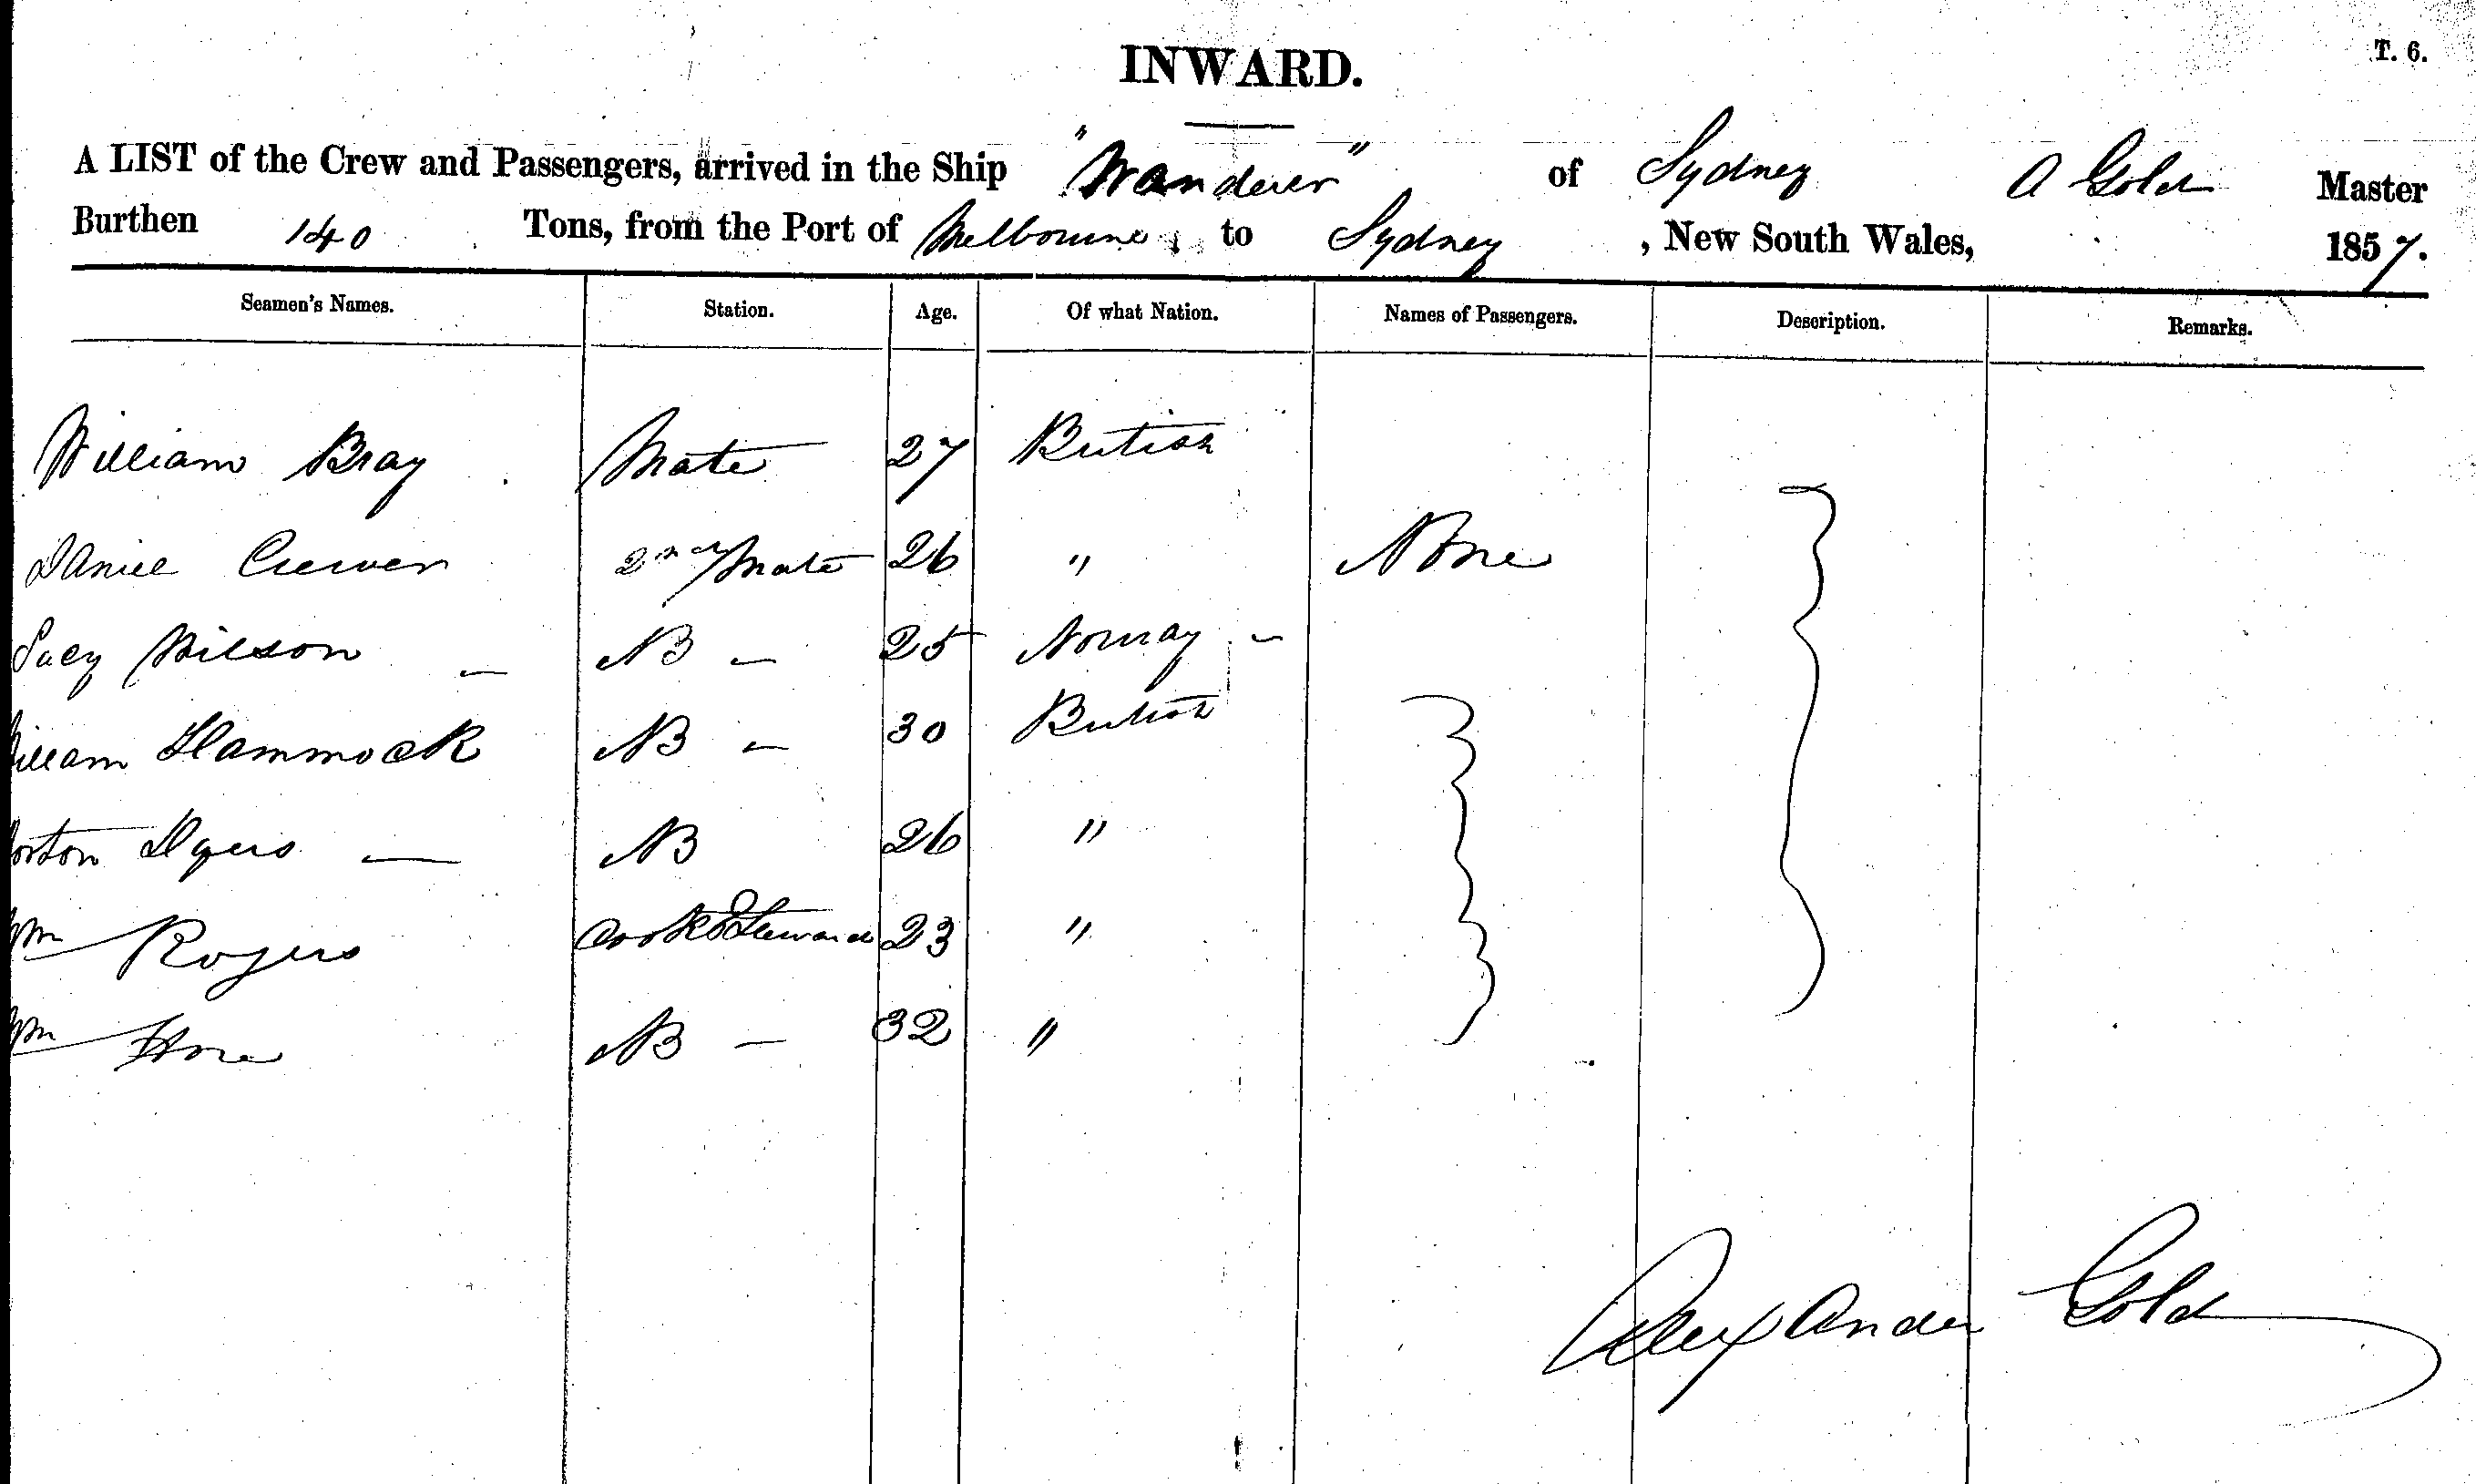 INWARD.
T. 6.
A LIST of the Crew and Passengers, arrived in the Ship "Wanderer" of Sydney A Gold Master
Burthen 140 Tons, from the Port of Melbourne, to Sydney, New South Wales, 1857.
Seamen's Names. Station. Age. Of what Nation. Names of Passengers. Description. Remarks.
William Bray Mate 27 British
Daniel 2nd Mate 26 " None
Wilson — AB — 25 Norway —
William Hammock AB — 30 British
Dyers — AB 26 "
Wm Rogers Cook & Steward 23 "
Wm Hore AB — 32 "
Alexander Gold